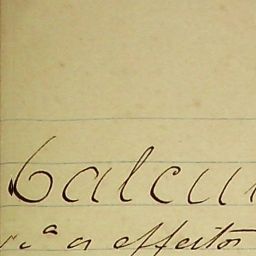 Calcu
a os effeitos